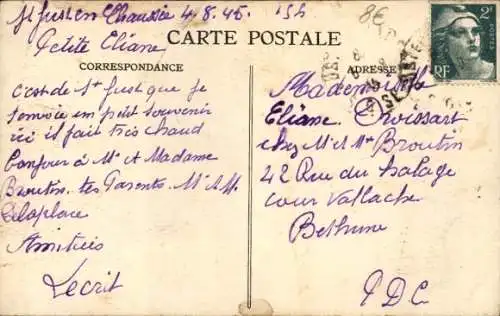 St Just en Chaussée 4.8.45. 15h
8€
Petite Eliane
CARTE POSTALE
CORRESPONDANCE
ADRESSE
2F
RF
c'est de St Just que je
t'envoie un petit souvenir
ici il fait très chaud
Bonjour à Mr et Madame
Broutin. tes Parents. Mr & M
Delaplace
Amitiés
Lecrit
Mademoiselle
Eliane Croissart
chez Mr et Mme Broutin
42 Rue du halage
cour Vallache
Bethune
P D C